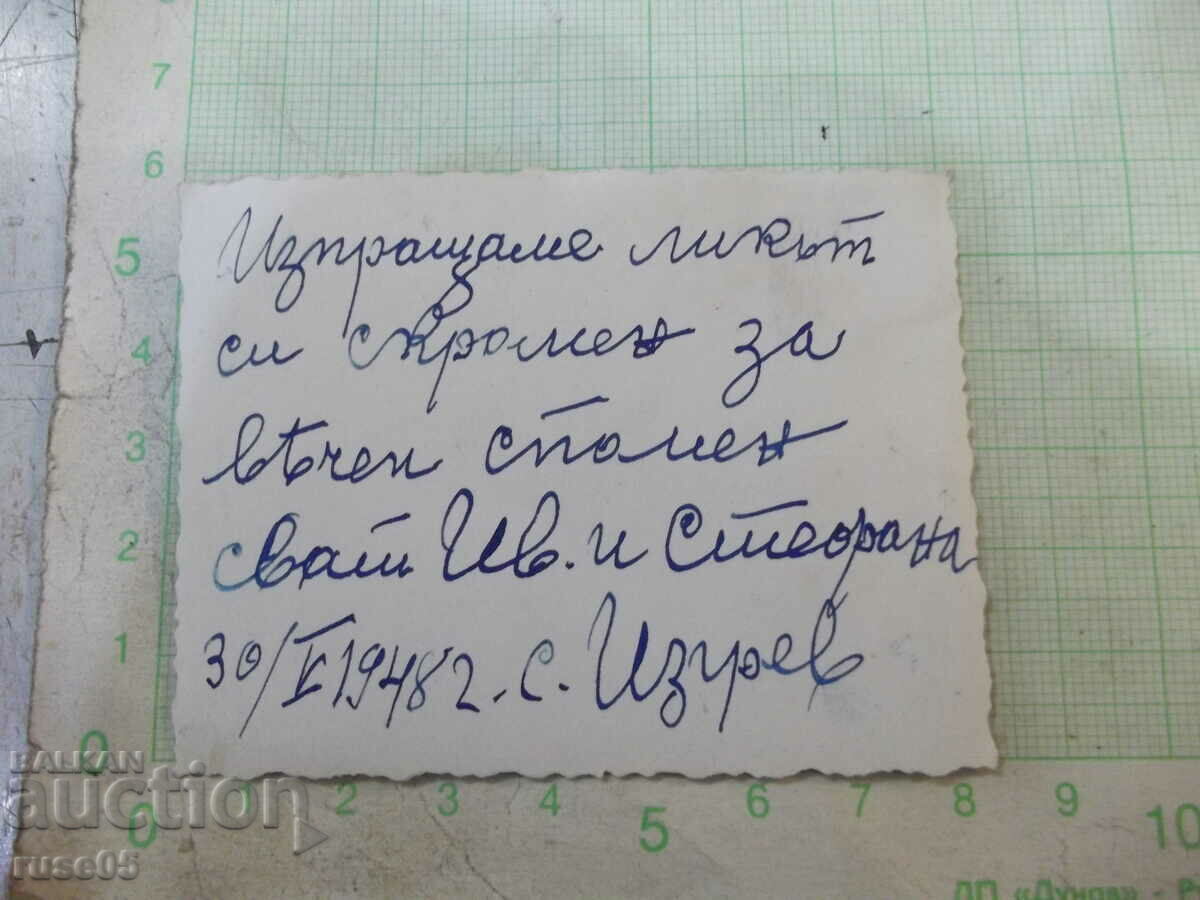 Изпращаме ликът
си скромен за
вѣчен спомен
сват Ив. и Стеорана
30/V 1948 г. с. Изгрев
7
6
5
4
3
2
1
0
0 1 2 3 4 5 6 7 8 9 10
BALKAN
auction
ruse05
ДП «Дунав» - Р